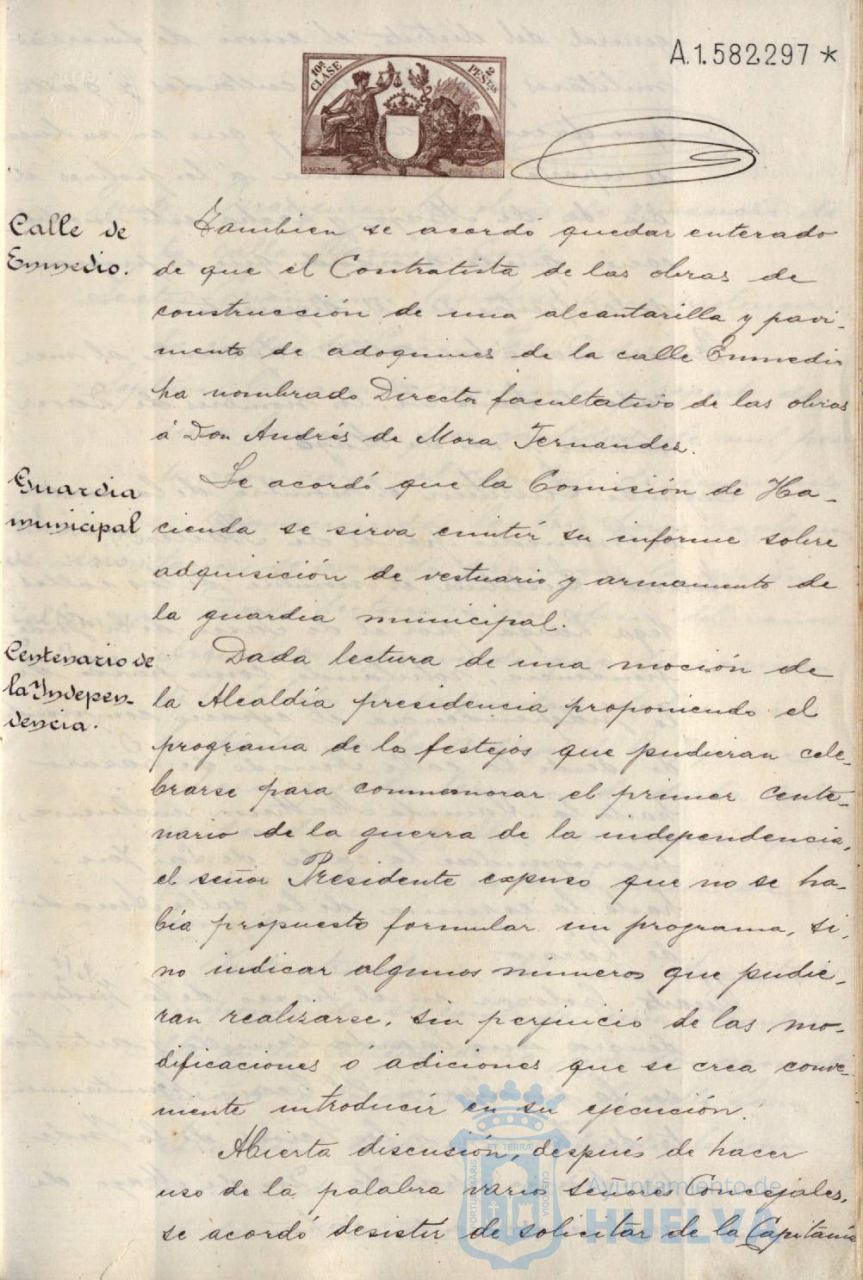 A.1.582297*
10ª CLASE
2 PESETAS
Calle de
Enmedio.
Tambien se acordó quedar enterado
de que el Contratista de las obras de
construcción de una alcantarilla y pavi-
mento de adoquines de la calle Enmedio
ha nombrado Director facultativo de las obras
á Don Andrés de Mora Fernandez.
Guardia
municipal
Se acordó que la Comisión de Ha-
cienda se sirva emitir su informe sobre
adquisición de vestuario y armamento de
la guardia municipal.
Centenario de
la Indepen-
dencia.
Dada lectura de una moción de
la Alcaldía presidencia proponiendo el
programa de lo festejos que pudieran cele-
brarse para conmemorar el primer cente-
nario de la guerra de la independencia,
el señor Presidente expuso que no se ha-
bía propuesto formular un programa, si-
no indicar algunos números que pudie-
ran realizarse, sin perjuicio de las mo-
dificaciones ó adiciones que se crea conve-
niente introducir en su ejecución.
Abierta discusión, después de hacer
uso de la palabra varios señores Concejales,
se acordó desistir de solicitar de la Capitanía
PORTUS MARIS ET TERRAE CUSTODIA
Ayuntamiento de
HUELVA